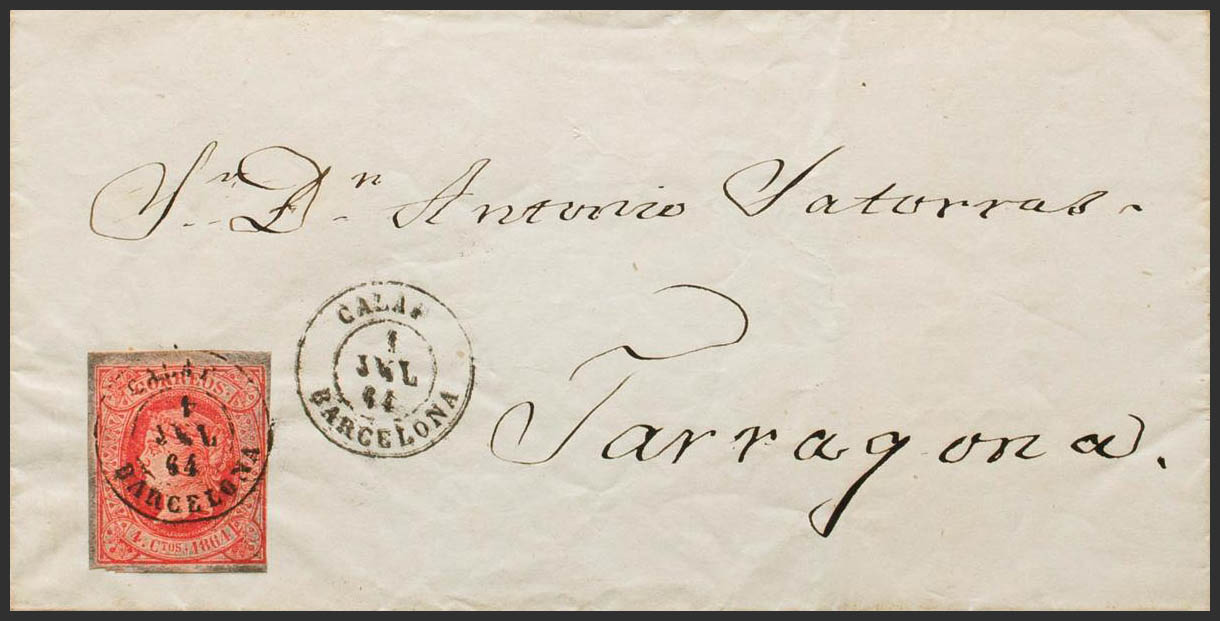 Sr. Dn. Antonio Satorras
Tarragona.
CALAF
1
JUL
64
BARCELONA
CORREOS
1
JUL
64
BARCELONA
4 CTOS. 1864